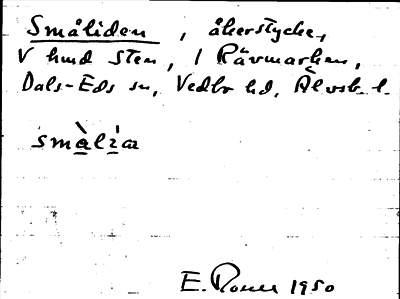 Småliden, åkerstycke,
V hmd Sten, i Rävmarken,
Dals-Eds sn, Vedbo hd, Älvsb. l.
smàlìa
E. 1950